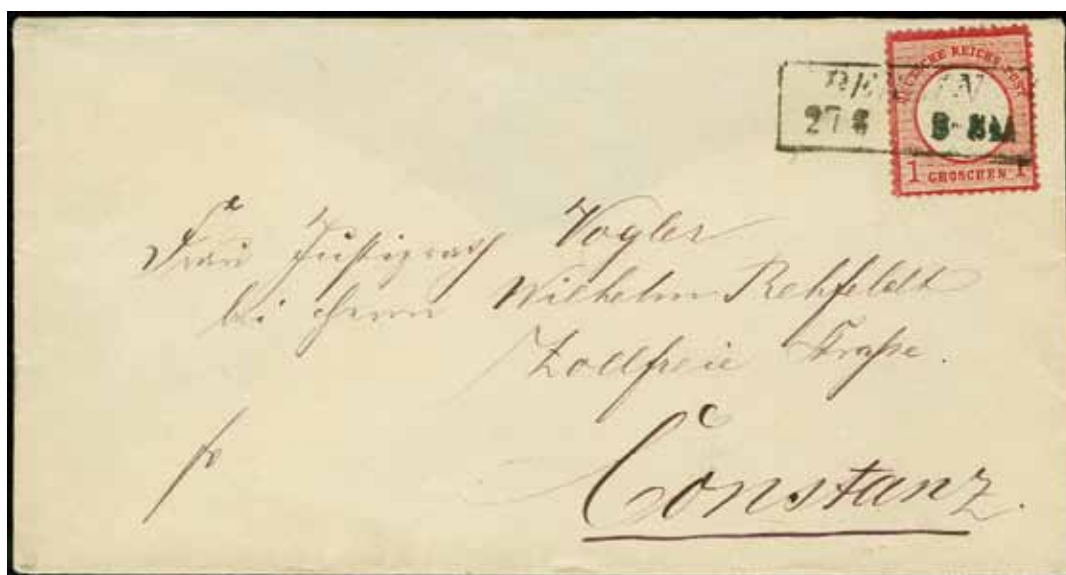 DEUTSCHE REICHS-POST
27 8
1 GROSCHEN 1
Frau Justizrath Vogler
bei Herrn Wilhelm Rehfeldt
Zollfreie Straße.
fr
Constanz.